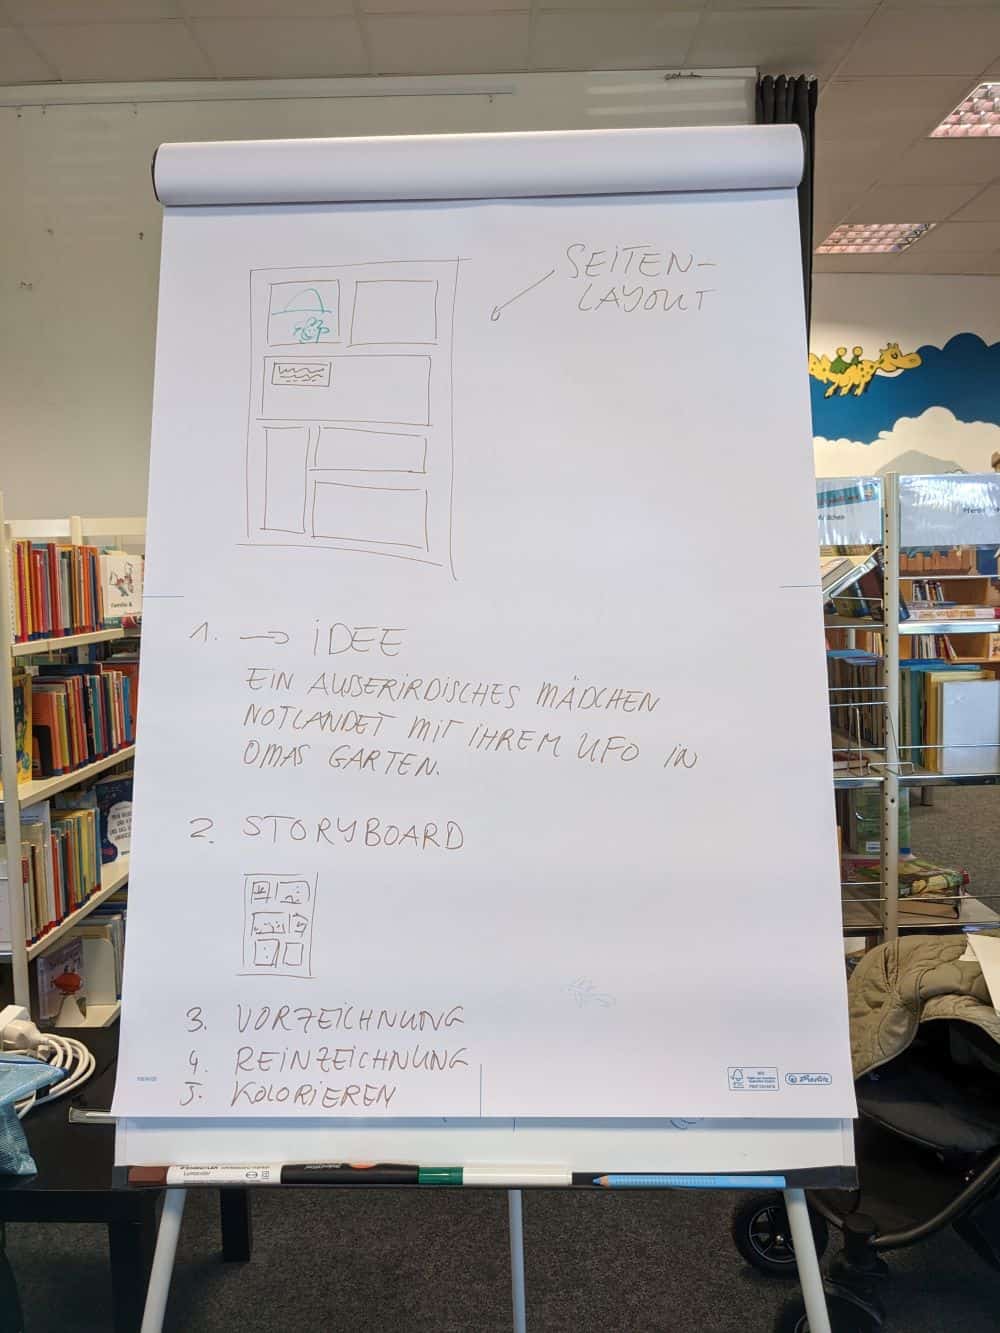 SEITEN-
LAYOUT
1. → IDEE
EIN AUSSERIRDISCHES MÄDCHEN
NOTLANDET MIT IHREM UFO IN
OMAS GARTEN.
2. STORYBOARD
3. VORZEICHNUNG
4. REINZEICHNUNG
5. KOLORIEREN